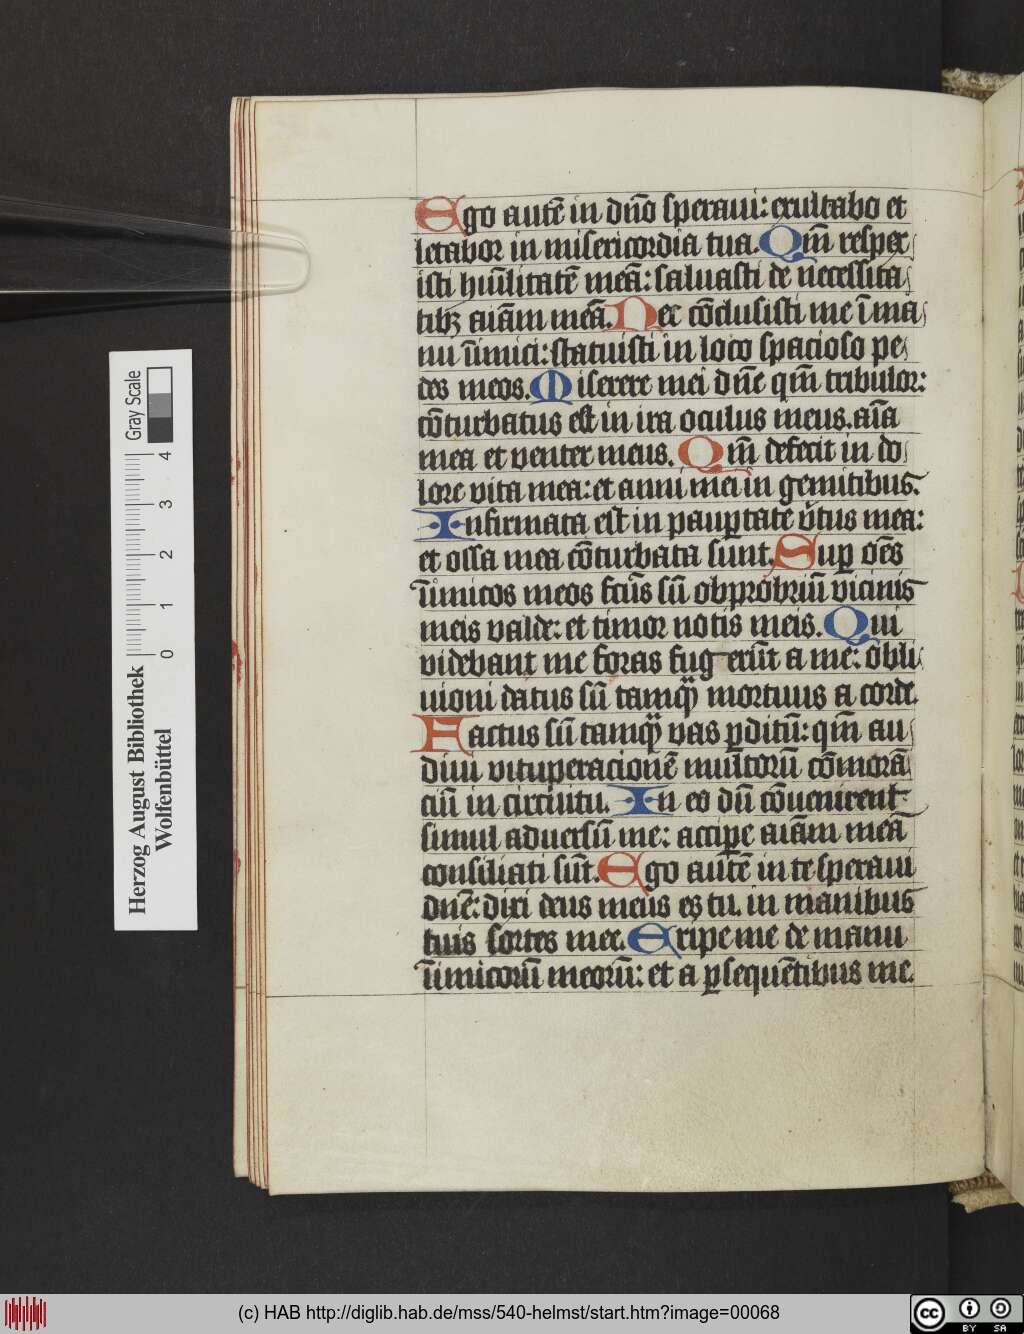 Ego autē in dn̄o speraui: exultabo et
letabor in misericordia tua. Qm̄ respex
isti hūilitatē meā: saluasti de necessita
tibꝫ aīam meā. Nec cōclusisti me ī ma
nu īimici: statuisti in loco spacioso pe
des meos. Miserere mei dn̄e qm̄ tribulor:
cōturbatus est in ira oculus meus. aīa
mea et venter meus. Qm̄ defecit in do
lore vita mea: et anni mei in gemitibus.
Infirmata est in paup̱tate v̄tus mea:
et ossa mea cōturbata sunt. Sup̱ oēs
īimicos meos fc̄us sū obprobriū vicinis
meis valde: et timor notis meis. Qui
videbant me foras fugerūt a me: obli
uioni datus sū tamq̄ mortuus a corde.
Factus sū tamq̄ vas p̱ditū: qm̄ au
diui vituperacionē multorū cōmorā
ciū in circuitu. In eo dū cōuenirent
simul aduersū me: accipe aīam meā
consiliati sūt. Ego autē in te speraui
dn̄e: dixi deus meus es tu. in manibus
tuis sortes mee. Eripe me de manu
īimicorū meorū: et a p̱sequētibus me.
Herzog August Bibliothek
Wolfenbüttel
0 1 2 3 4
Gray Scale
(c) HAB http://diglib.hab.de/mss/540-helmst/start.htm?image=00068
cc BY SA